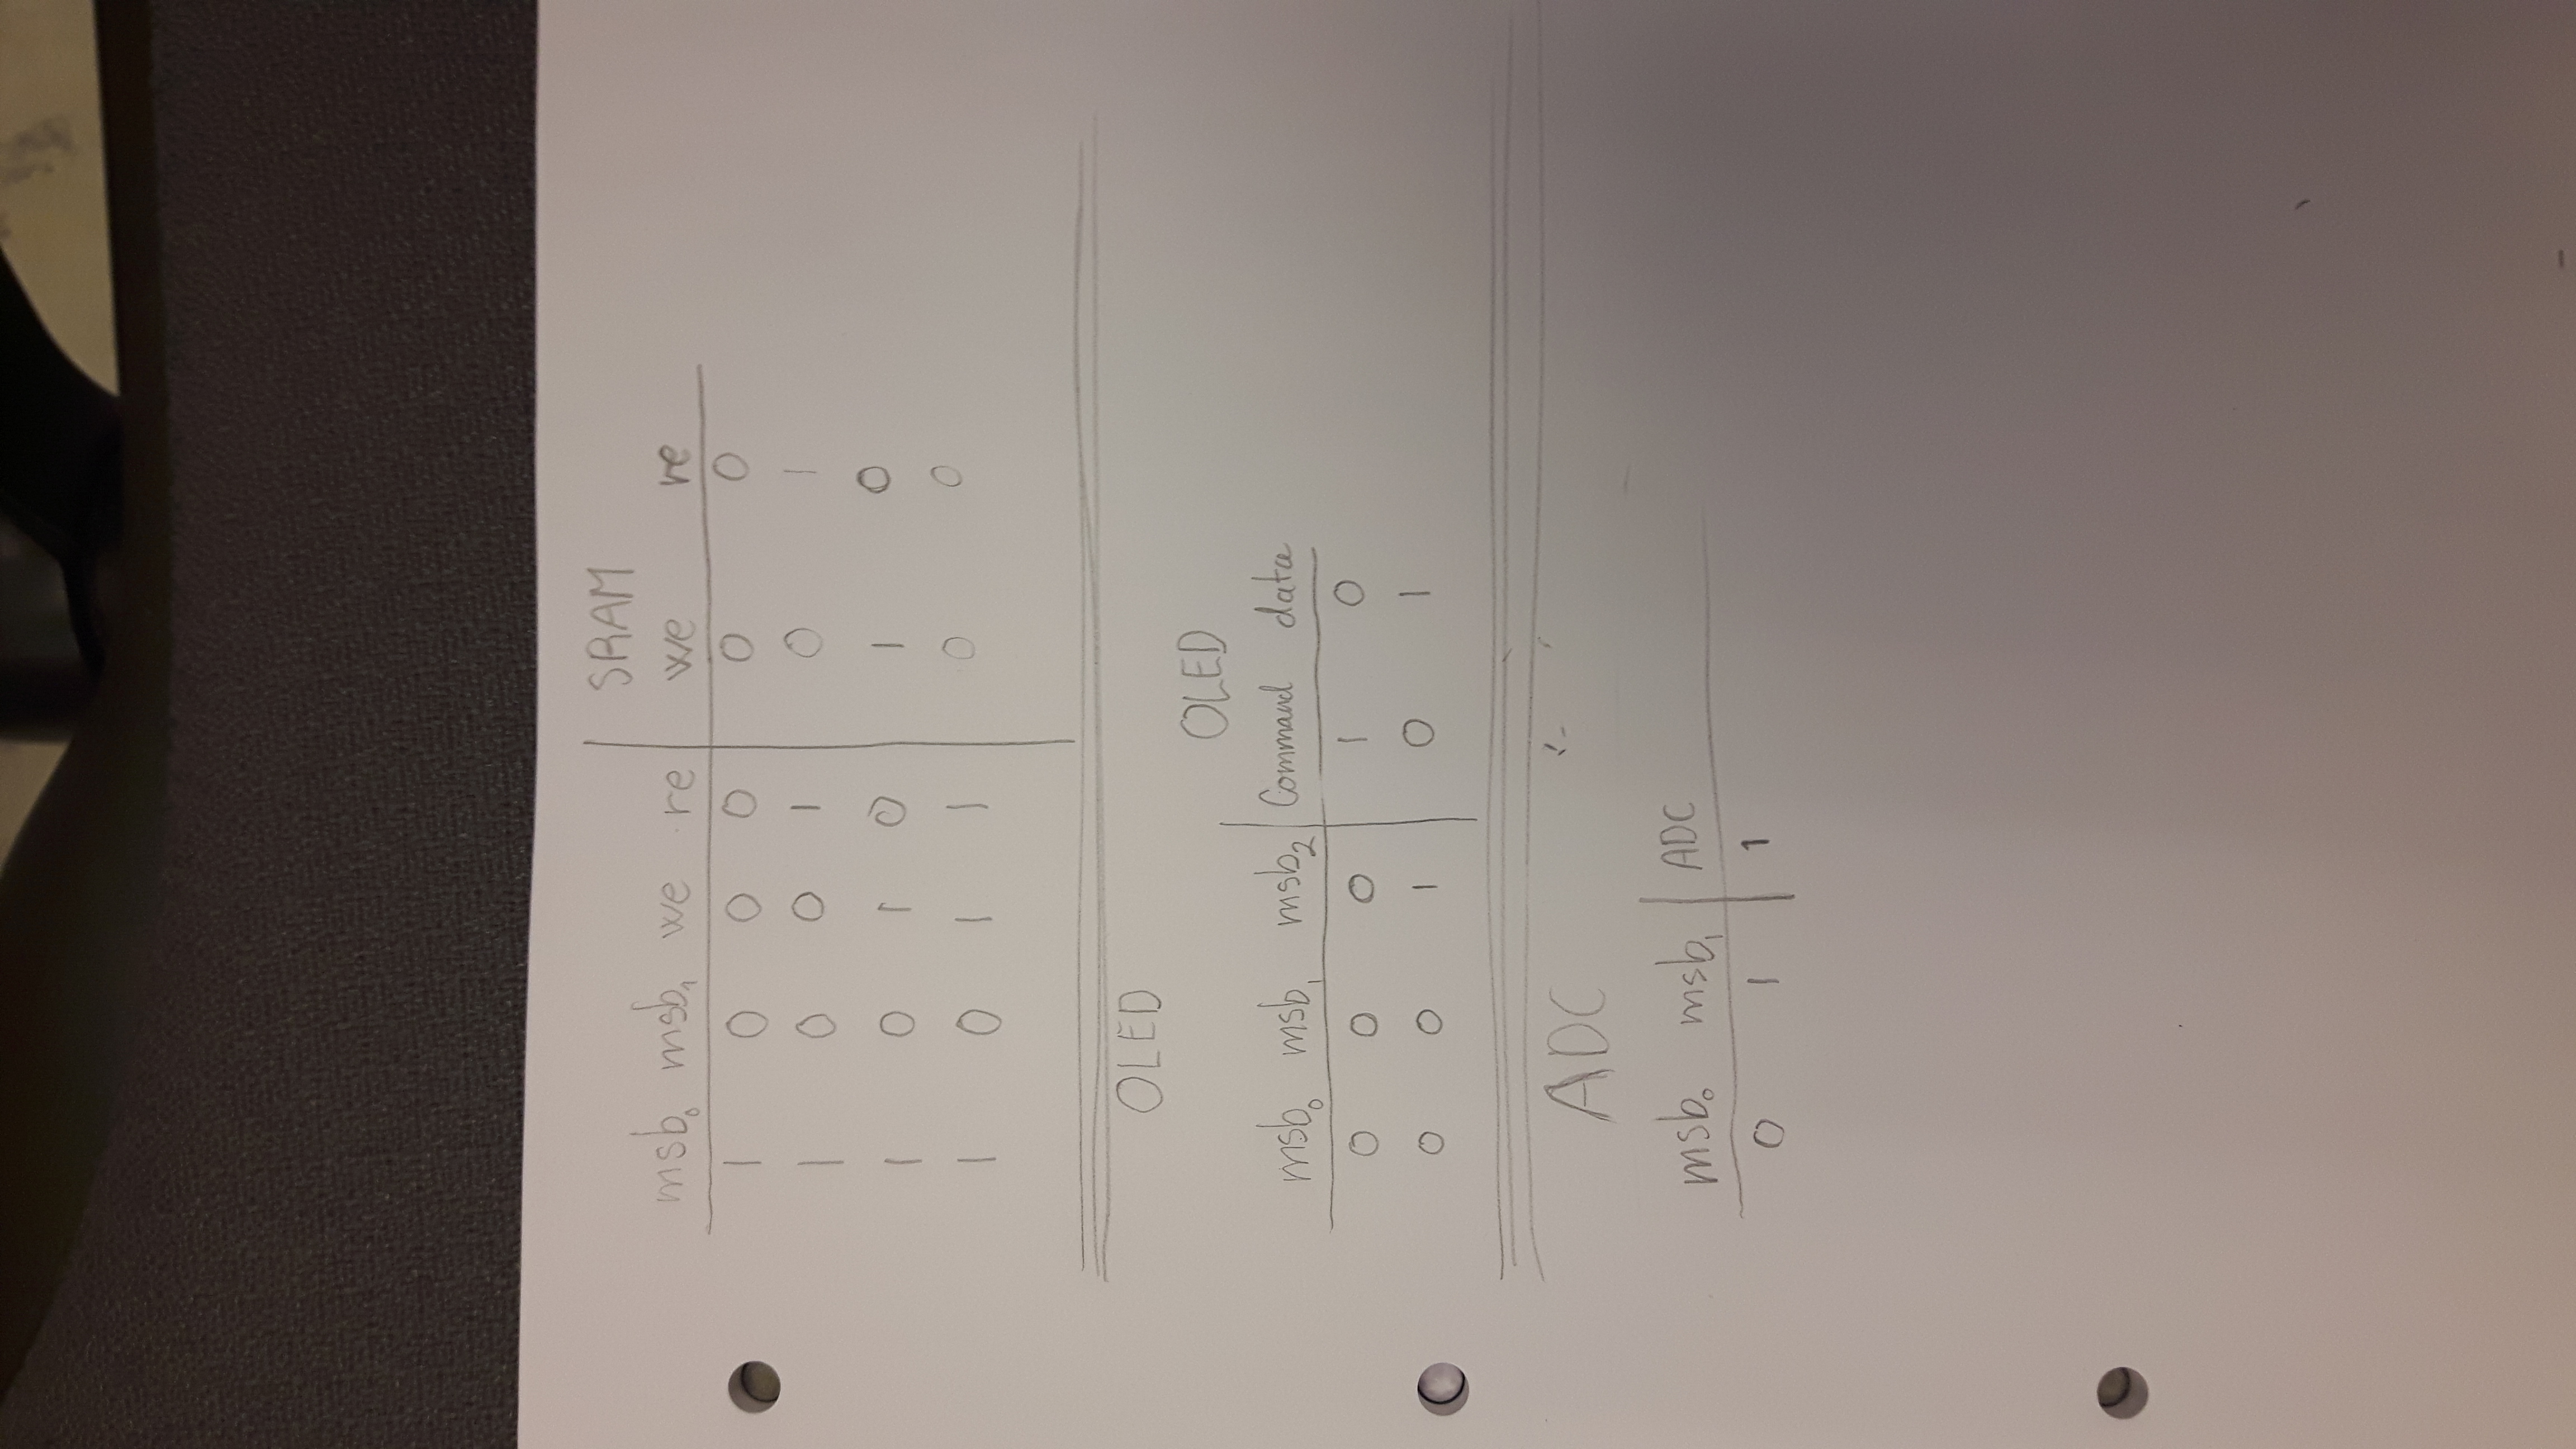 SRAM
msb₀ msb₁ we re we re
1 0 0 0 0 0
1 0 0 1 0 1
1 0 1 0 1 0
1 0 1 1 0 0
OLED
OLED
msb₀ msb₁ msb₂ Command data
0 0 0 1 0
0 0 1 0 1
ADC
msb₀ msb₁ ADC
0 1 1